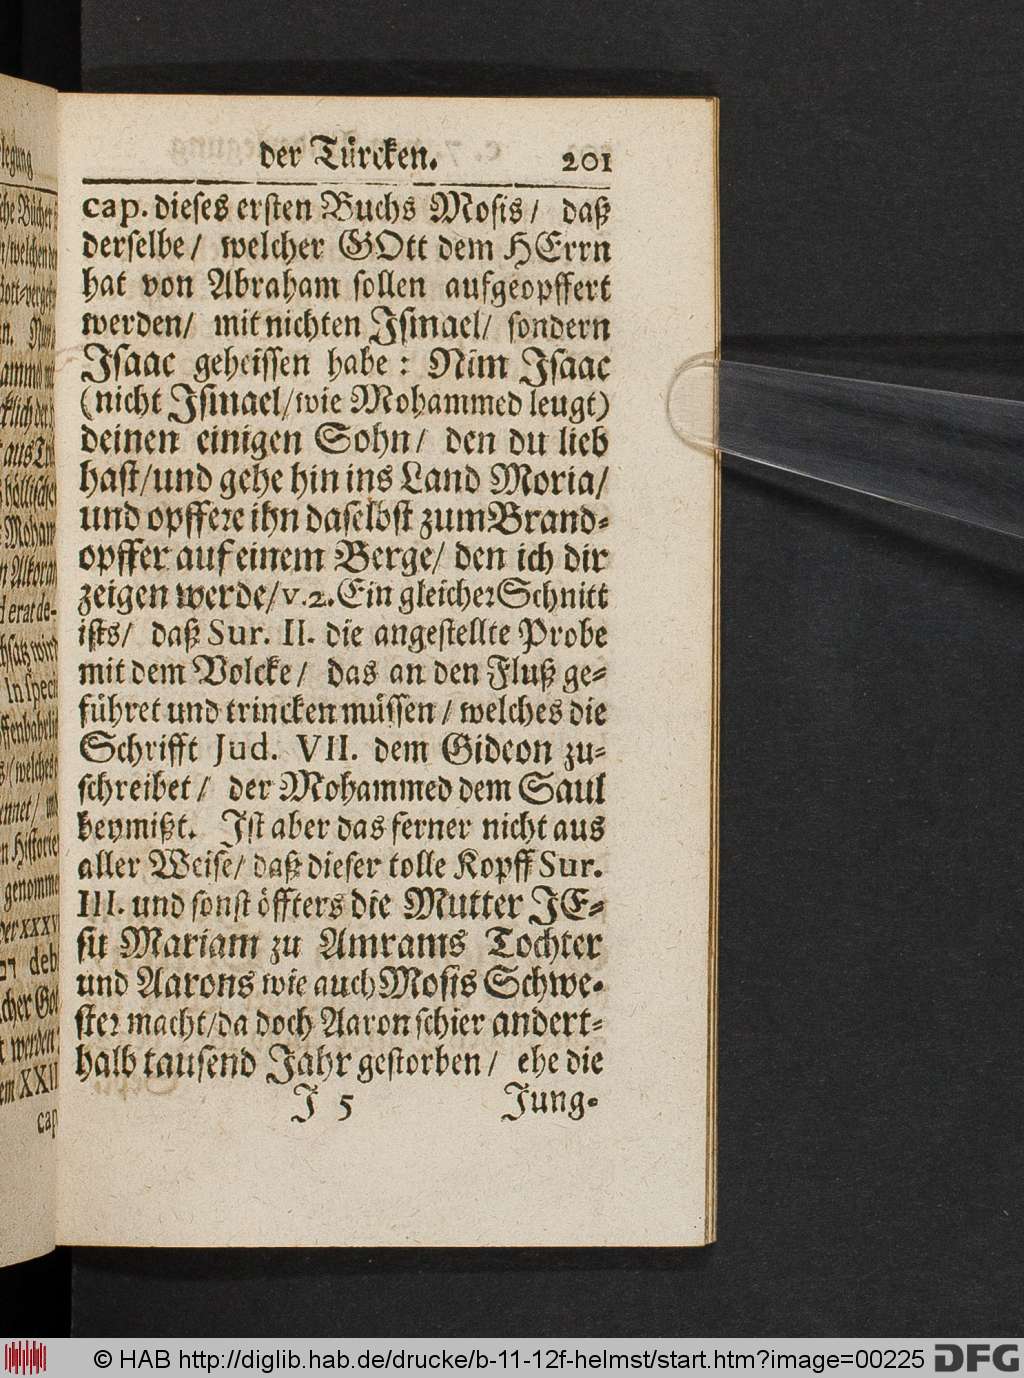 der Türcken. 201
cap. dieses ersten Buchs Mosis / daß
derselbe / welcher GOtt dem HErrn
hat von Abraham sollen aufgeopffert
werden / mit nichten Ismael / sondern
Isaac geheissen habe : Nim̃ Isaac
(nicht Ismael / wie Mohammed leugt)
deinen einigen Sohn / den du lieb
hast / und gehe hin ins Land Moria /
und opffere ihn daselbst zum Brand-
opffer auf einem Berge / den ich dir
zeigen werde / v. 2. Ein gleicher Schnitt
ists / daß Sur. II. die angestellte Probe
mit dem Volcke / das an den Fluß ge-
führet und trincken müssen / welches die
Schrifft Jud. VII. dem Gideon zu-
schreibet / der Mohammed dem Saul
beymißt. Ist aber das ferner nicht aus
aller Weise / daß dieser tolle Kopff Sur.
III. und sonst öffters die Mutter JE-
su Mariam zu Amrams Tochter
und Aarons wie auch Mosis Schwe-
ster macht / da doch Aaron schier andert-
halb tausend Jahr gestorben / ehe die
J 5 Jung-
© HAB http://diglib.hab.de/drucke/b-11-12f-helmst/start.htm?image=00225 DFG